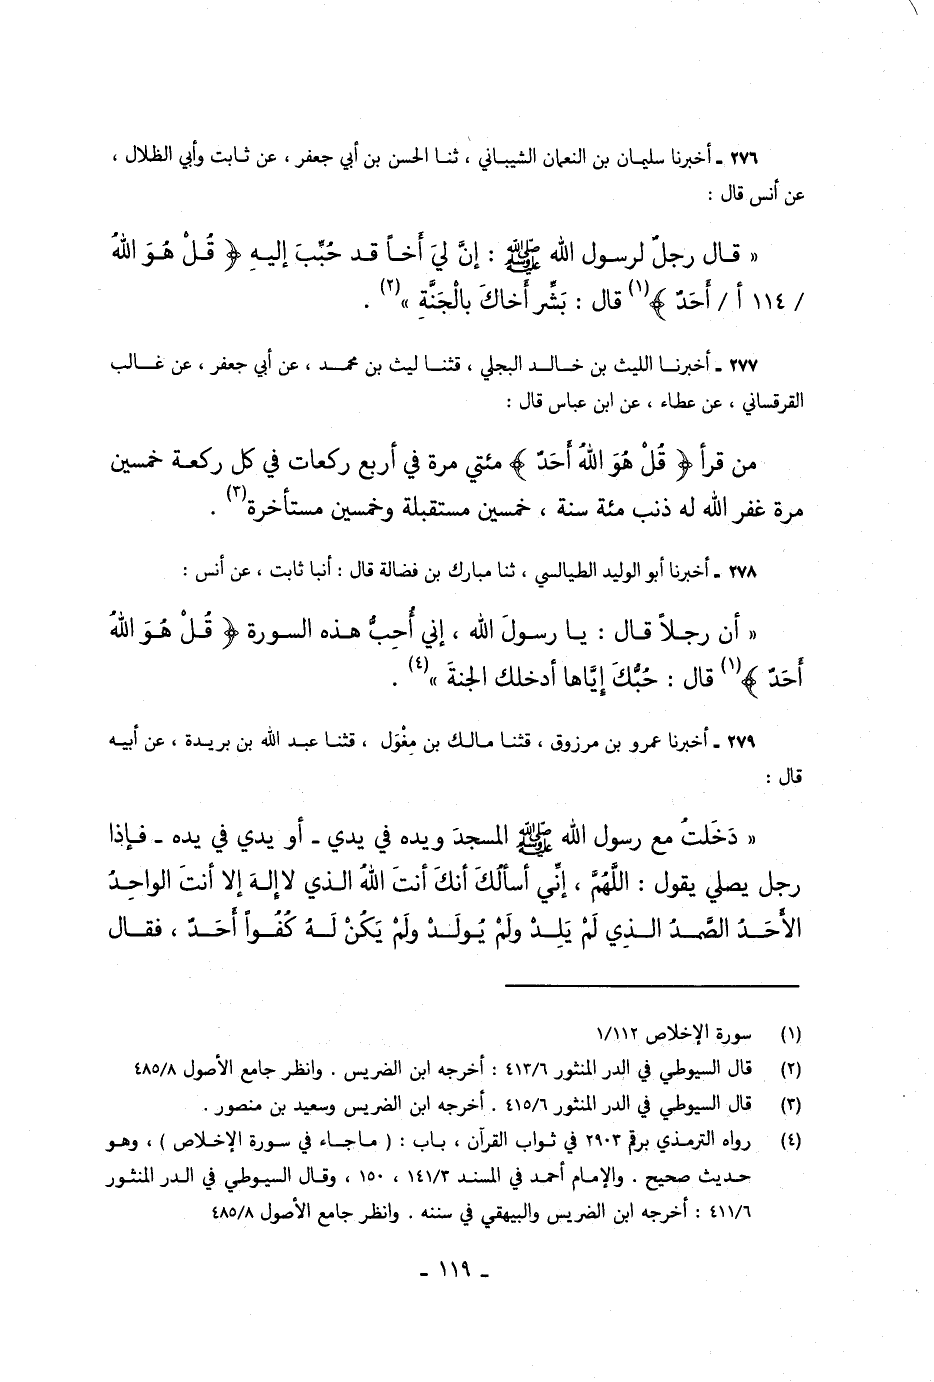 ٢٧٦ ـ أخبرنا سليمان بن النعمان الشيباني ، ثنا الحسن بن أبي جعفر ، عن ثابت وأبي الظلال ،
عن أنس قال :
« قال رجلٌ لرسول الله ﷺ : إنَّ ليَ أخاً قد حُبِّبَ إليهِ ﴿ قُلْ هُوَ اللهُ
/ ١١٤ أ / أَحَدٌ ﴾(١) قال : بَشِّر أخاكَ بالْجَنَّةِ »(٢) .
٢٧٧ ـ أخبرنا الليث بن خالد البجلي ، قثنا ليث بن محمد ، عن أبي جعفر ، عن غالب
القرقساني ، عن عطاء ، عن ابن عباس قال :
من قرأ ﴿ قُلْ هُوَ اللهُ أَحَدٌ ﴾ مئتي مرة في أربع ركعات في كل ركعة خمسين
مرة غفر الله له ذنب مئة سنة ، خمسين مستقبلة وخمسين مستأخرة(٣) .
٢٧٨ ـ أخبرنا أبو الوليد الطيالسي ، ثنا مبارك بن فضالة قال : أنبا ثابت ، عن أنس :
« أن رجلاً قال : يا رسولَ الله ، إني أُحِبُّ هذه السورة ﴿ قُلْ هُوَ اللهُ
أَحَدٌ ﴾(١) قال : حُبُّكَ إيَّاها أدخلك الجنةَ »(٤) .
٢٧٩ ـ أخبرنا عمرو بن مرزوق ، قثنا مالك بن مِغْوَل ، قثنا عبد الله بن بريدة ، عن أبيه
قال :
« دَخَلتُ مع رسول الله ﷺ المسجدَ ويده في يدي ـ أو يدي في يده ـ فإذا
رجل يصلي يقول : اللَّهُمَّ ، إنِّي أسألُكَ أنكَ أنتَ اللهُ الذي لاإلهَ إلا أنتَ الواحِدُ
الأَحَدُ الصَّمدُ الذِي لَمْ يَلِدْ ولَمْ يُولَدْ ولَمْ يَكُنْ لَهُ كُفُواً أَحَدٌ ، فقال
(١) سورة الإخلاص ١/١١٢
(٢) قال السيوطي في الدر المنثور ٤١٣/٦ : أخرجه ابن الضريس . وانظر جامع الأصول ٤٨٥/٨
(٣) قال السيوطي في الدر المنثور ٤١٥/٦ . أخرجه ابن الضريس وسعيد بن منصور .
(٤) رواه الترمذي برقم ٢٩٠٣ في ثواب القرآن ، باب : ( ماجاء في سورة الإخلاص ) ، وهو
حديث صحيح . والإمام أحمد في المسند ١٤١/٣ ، ١٥٠ ، وقال السيوطي في الدر المنثور
٤١١/٦ : أخرجه ابن الضريس والبيهقي في سننه . وانظر جامع الأصول ٤٨٥/٨
ـ ١١٩ ـ